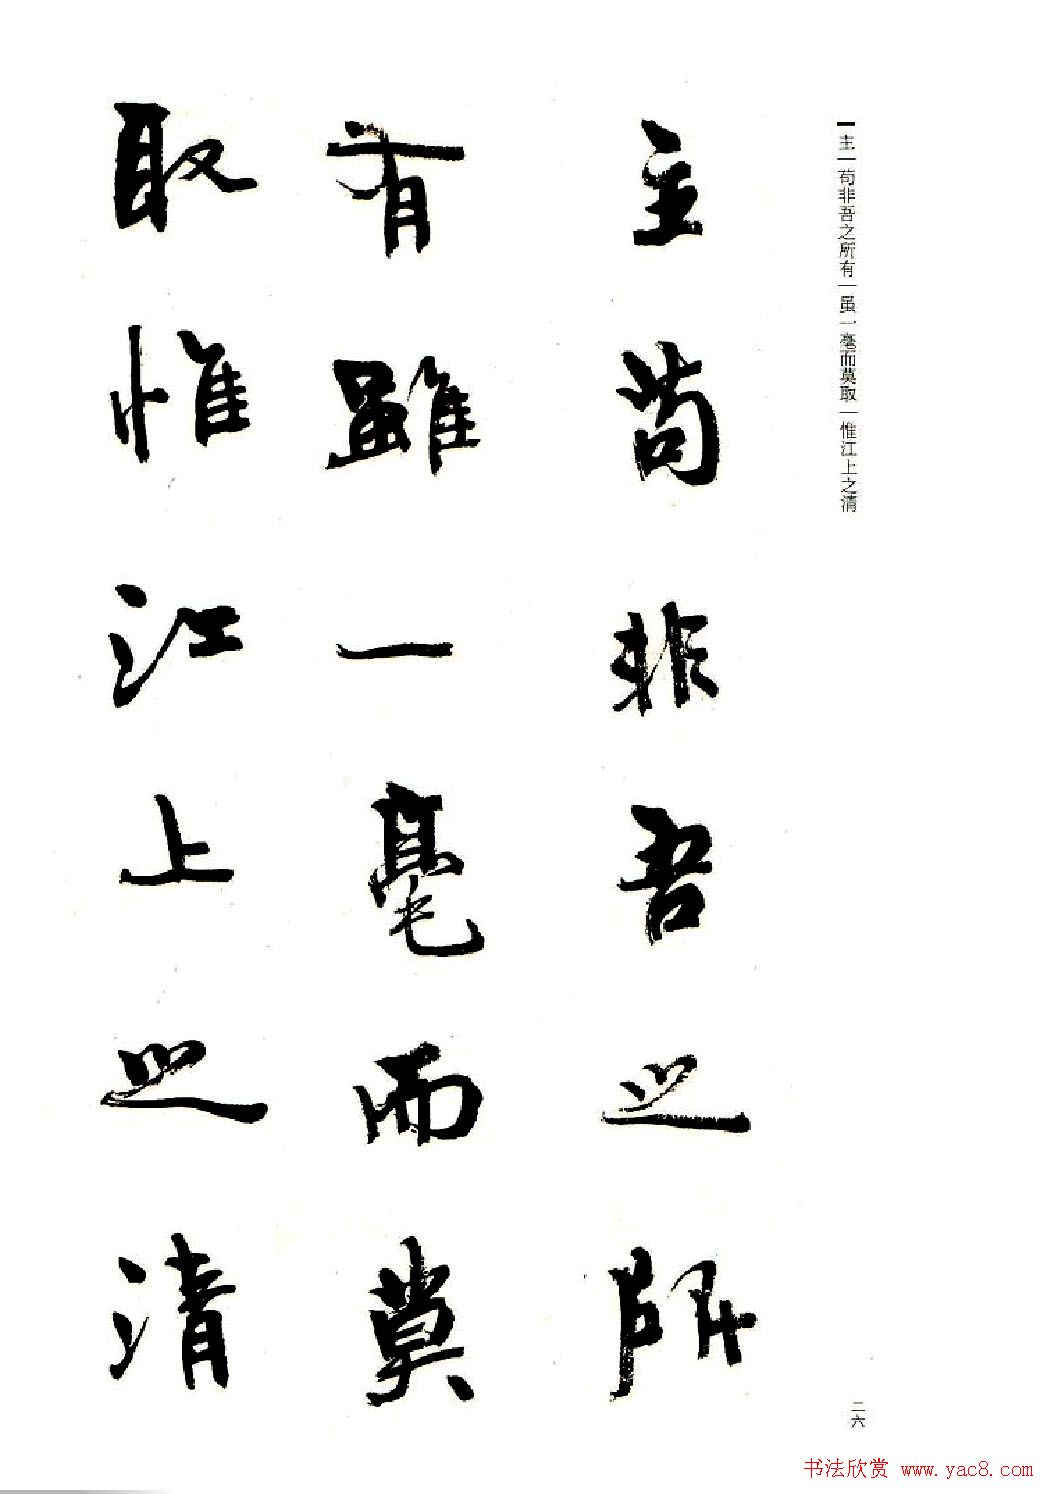 主｜苟非吾之所有｜虽一毫而莫取｜惟江上之清
主苟非吾之所
有雖一毫而莫
取惟江上之清
二六
书法欣赏 www.yac8.com